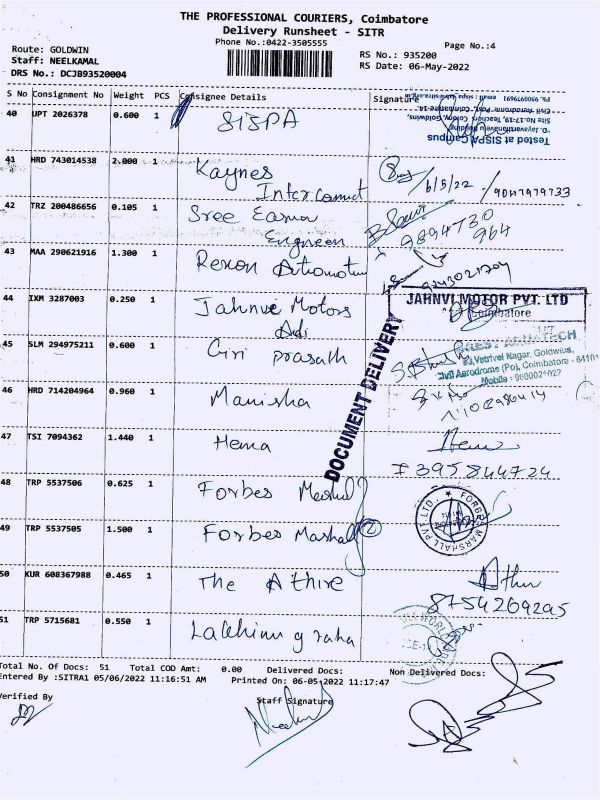 THE PROFESSIONAL COURIERS, Coimbatore
Delivery Runsheet - SITR
Phone No.:0422-3505555
Page No.:4
Route: GOLDWIN
Staff: NEELKAMAL
DRS No.: DCJB93520004
RS No.: 935200
RS Date: 06-May-2022
S No Consignment No Weight PCS Consignee Details Signature
40 UPT 2026378 0.600 1 SISPA
Tested at SISPA Campus
Site No.17-19, Teachers Colony, Goldwins,
Civil Aerodrome Post, Coimbatore-14
41 HRD 743014538 2.000 1 Kaynes
Interconnect
6/5/22
42 TRZ 200486656 0.105 1 Sree
Engneen
9894730
964
43 MAA 290621916 1.300 1 Rexon Automotive
44 IXM 3287003 0.250 1 Jahnve Motors
JAHNVI MOTOR PVT. LTD
Coimbatore
45 SLM 294975211 0.600 1 Giri prasath
Vetrivel Nagar, Goldwins,
Civil Aerodrome (Po), Coimbatore - 64101
46 HRD 714204964 0.960 1 Manisha
DOCUMENT DELIVERY
47 TSI 7094362 1.440 1 Hema
48 TRP 5537506 0.625 1 Forbes
49 TRP 5537505 1.500 1 Forbes Marshall
FORBES MARSHALL PVT. LTD.
50 KUR 608367988 0.465 1 The Athire
8754269295
51 TRP 5715681 0.550 1
Total No. Of Docs: 51 Total COD Amt: 0.00 Delivered Docs: Non Delivered Docs:
Entered By :SITRA1 05/06/2022 11:16:51 AM Printed On: 06-05-2022 11:17:47
Verified By Staff Signature